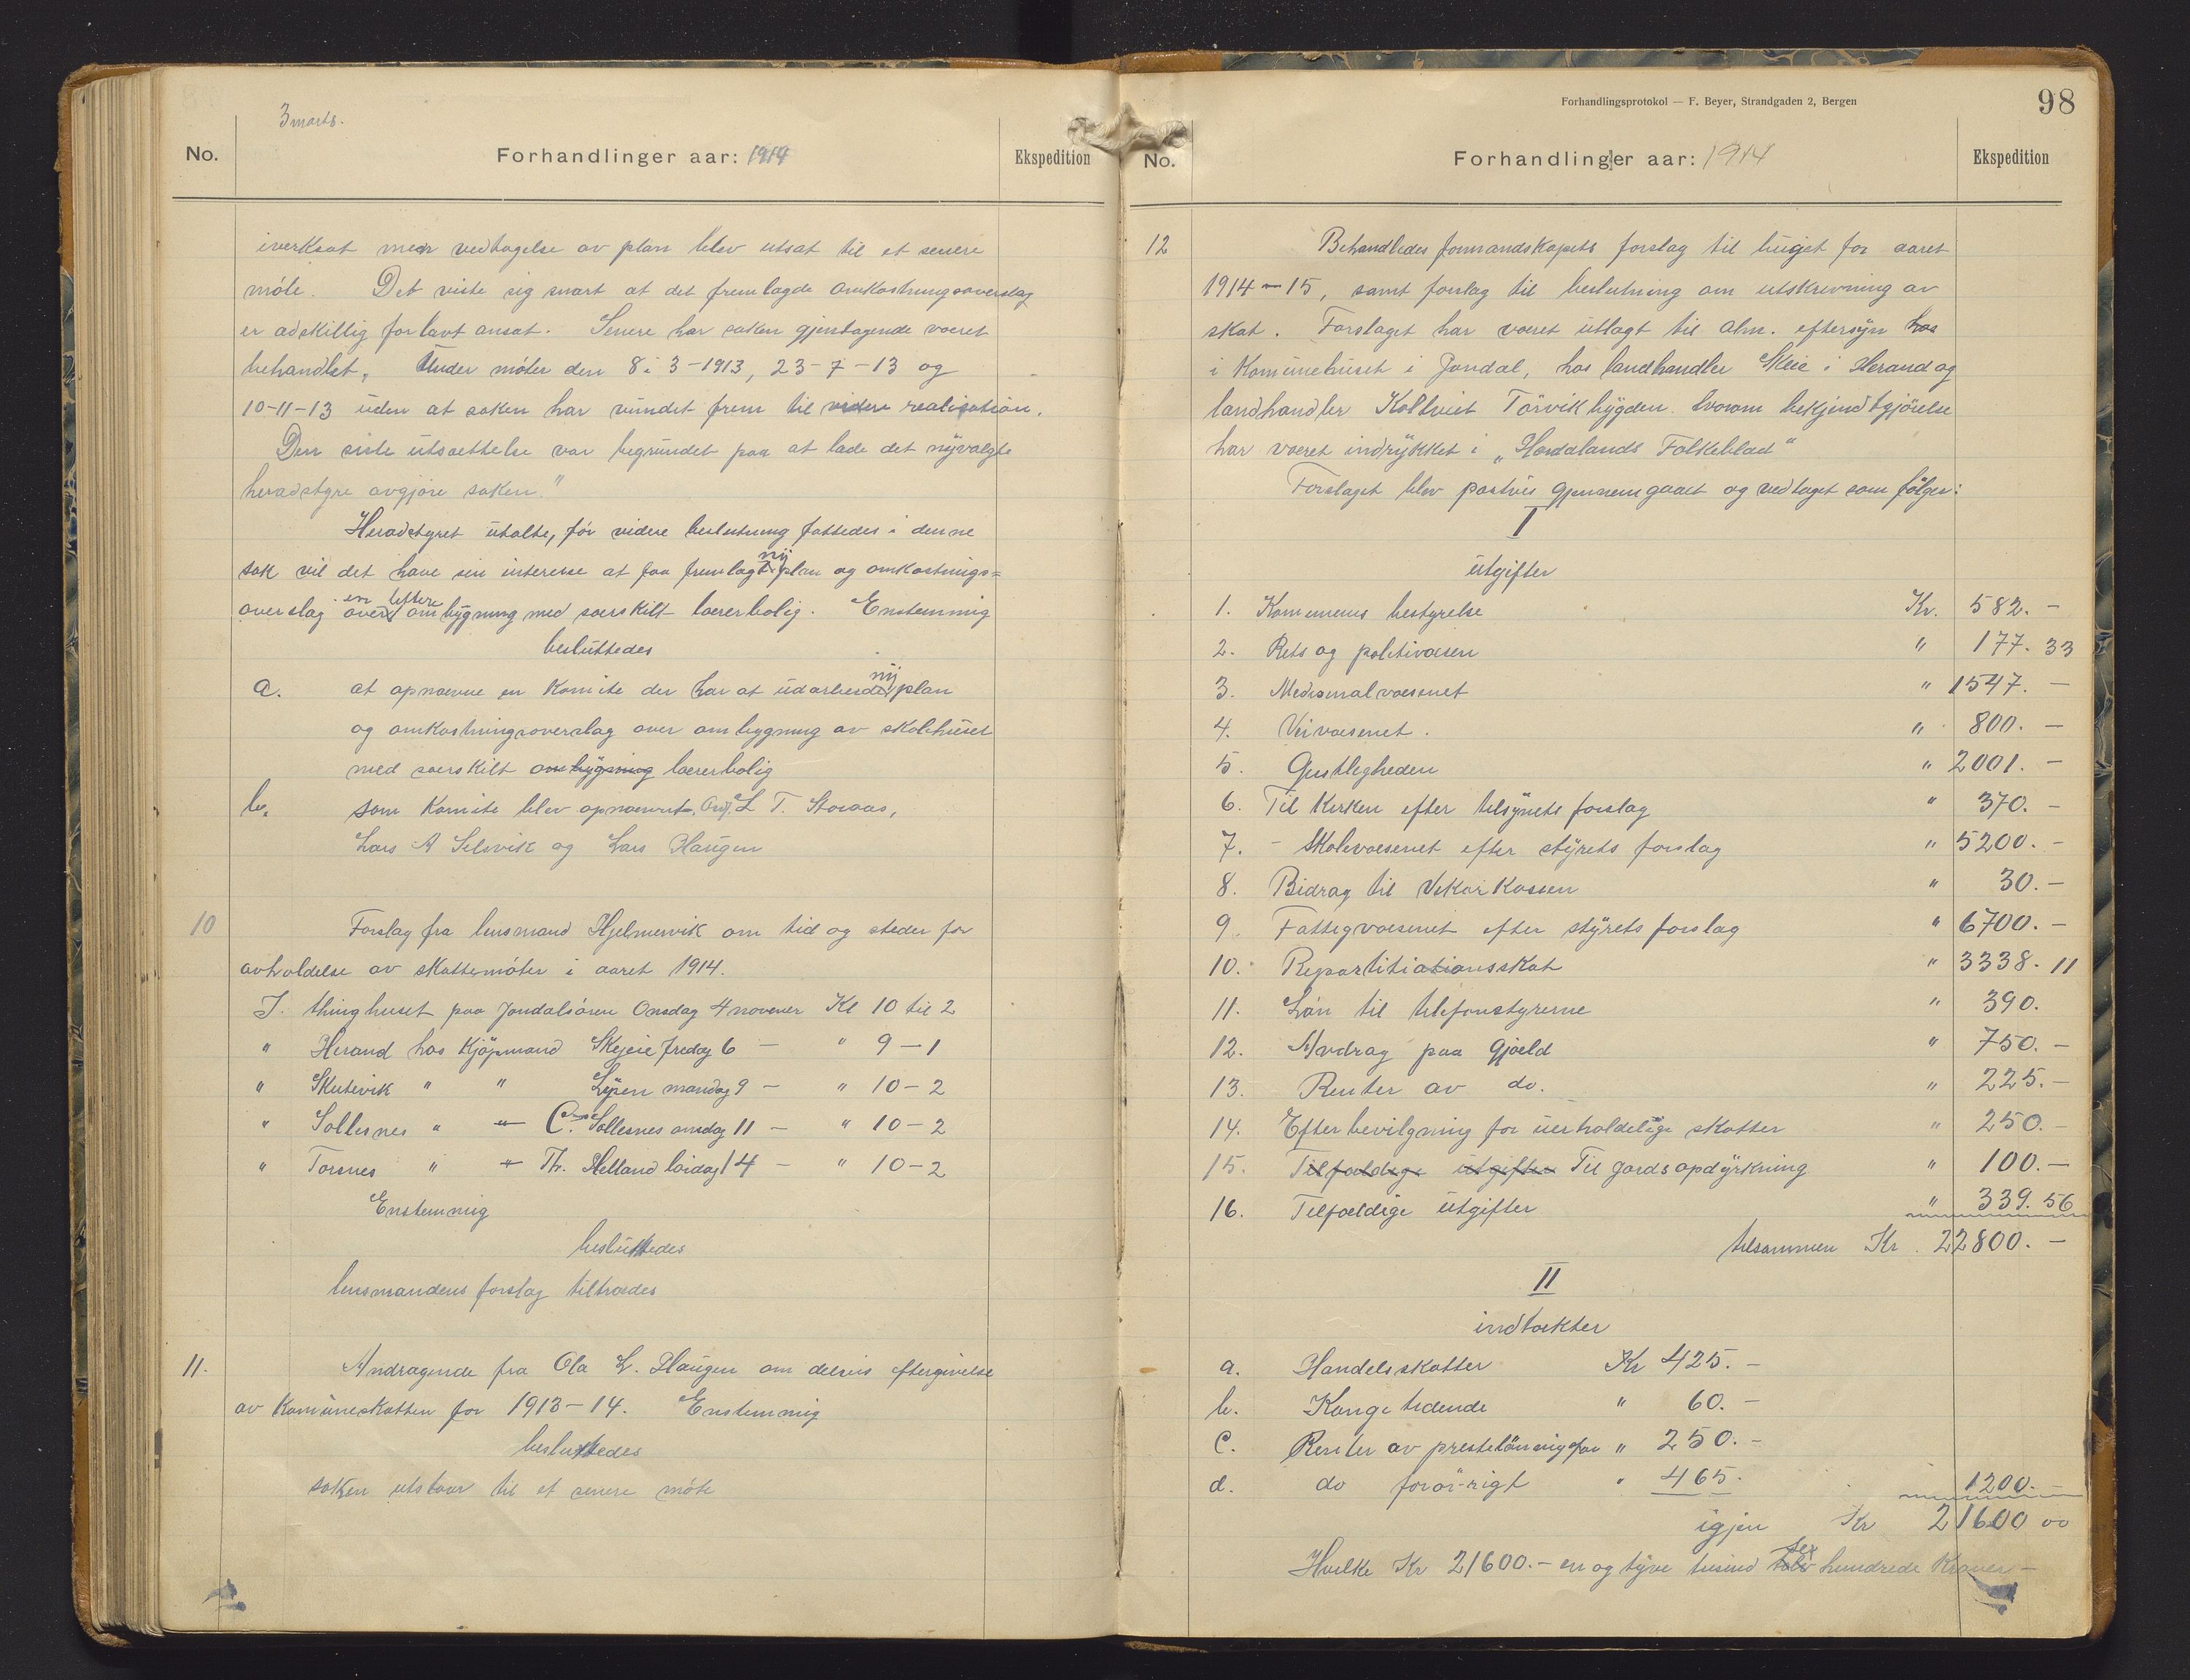 3 marts.
No.
Forhandlinger aar: 1914
Ekspedition
iverksat men vedtagelse av plan blev utsat til et senere
møte. Det viste sig snart at det fremlagde omkostningsoverslag
er adskillig for lavt ansat. Senere har saken gjentagende været
behandlet. Under møter den 8-3-1913, 23-7-13 og
10-11-13 uden at saken har vundet frem til videre realisation.
Den siste utsættelse var begrundet paa at lade det nyvalgte
heradstyre avgjøre saken."
Heradstyret utalte, før videre beslutning fattedes i denne
sak vil det have sin interesse at faa fremlagt ny plan og omkostnings=
overslag over en lettere ombygning med særskilt lærerbolig. Enstemmig
besluttedes
a. at opnævne en Komite der har at udarbeide ny plan
og omkostningsoverslag over ombygning av skolehuset
med særskilt ombygning lærerbolig
b. som Komite blev opnævnt, L T. Storaas,
Lars A Selsvik og Lars Haugen
10 Forslag fra lensmand Hjelmervik om tid og steder for
avholdelse av skattemøter i aaret 1914.
I. thinghuset paa Jondalsøren Onsdag 4 novemer Kl 10 til 2
" Herand hos Kjøpmand Skjeie fredag 6 — " 9 – 1
" Skutevik " " Lypen mandag 9 — " 10 – 2
" Sollesnes " " C. Sollesnes onsdag 11 — " 10 – 2
" Torsnes " " Th. Helland lørdag 14 — " 10 – 2
Enstemmig
besluttedes
lensmandens forslag tiltrædes
11. Andragende fra Ola L. Haugen om delvis eftergivelse
av Kommuneskatten for 1913-14. Enstemmig
besluttedes
saken utstaar til et senere møte
Forhandlingsprotokol — F. Beyer, Strandgaden 2, Bergen
98
No.
Forhandlinger aar: 1914
Ekspedition
12 Behandledes formandskapets forslag til buget for aaret
1914-15, samt forslag til beslutning om utskrivning av
skat. Forslaget har været utlagt til alm. eftersyn hos
i Komunehuset i Jondal, hos landhandler Skeie i Herand og
landhandler Koltveit Tørvikbygden. hvorom bekjendtgjørelse
har været indrykket i „Hordalands Folkeblad"
Forslaget blev postvis gjennemgaaet og vedtaget som følger:
I
utgifter
1. Komunens bestyrelse Kr. 582. –
2. Rets og politivæsen " 177. 33
3. Medisinalvæsenet " 1547. –
4. Veivæsenet. " 800. –
5. Geistligheden " 2001. –
6. Til Kirken efter tilsynets forslag " 370. –
7. – Skolevæsenet efter styrets forslag " 5200. –
8. Bidrag til Vekarkassen " 30. –
9. Fattigvæsenet efter styrets forslag " 6700. –
10. Repartitiationsskat " 3338. 11
11. Løn til telefonstyrerne " 390.
12. Avdrag paa gjæld " 750. –
13. Renter av do. " 225. –
14. Efterbevilgning for uerholdelige skatter " 250. –
15. Tilfældige utgifter Til jordsopdyrkning " 100. –
16. Tilfældige utgifter " 339. 56
tilsammen Kr. 22800. –
II
indtækter
a. Handelsskatter Kr 425. –
b. Kongetiende " 60. –
c. Renter av prestelønningsfon " 250. –
d. do forøvrigt " 465. 1200. –
igjen Kr 21600 00
Hvilke Kr 21600.– en og tyve tusind tolv sex hundrede Kroner –